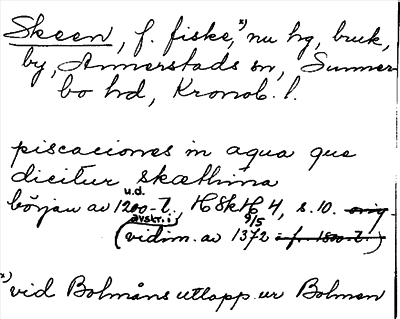 Skeen, f. fiske,ˣ⁾ nu hg, bruk,
by, Annerstads sn, Sunner-
bo hd, Kronob. l.
piscaciones in aqua que
dicitur skæthna
u.d.
början av 1200-t., HSkH 4, s. 10. orig.
avskr. i 9/5
(vidim. av 1372 f. 1800-t.)
x) vid Bolmåns utlopp ur Bolmen